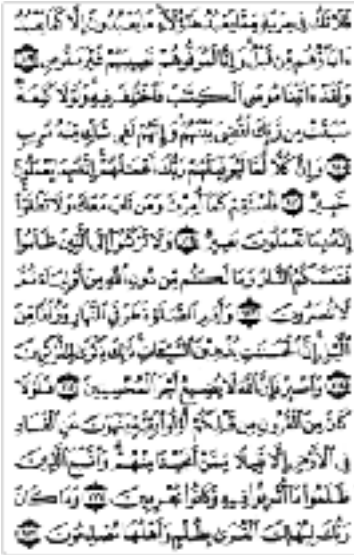 فَلَا تَكُ فِى مِرْيَةٍ مِّمَّا يَعْبُدُ هَٰٓؤُلَآءِ مَا يَعْبُدُونَ إِلَّا كَمَا يَعْبُدُ
ءَابَآؤُهُم مِّن قَبْلُ وَإِنَّا لَمُوَفُّوهُمْ نَصِيبَهُمْ غَيْرَ مَنقُوصٍ ١٠٩
وَلَقَدْ ءَاتَيْنَا مُوسَى ٱلْكِتَٰبَ فَٱخْتُلِفَ فِيهِ وَلَوْلَا كَلِمَةٌ
سَبَقَتْ مِن رَّبِّكَ لَقُضِىَ بَيْنَهُمْ وَإِنَّهُمْ لَفِى شَكٍّ مِّنْهُ مُرِيبٍ
١١٠ وَإِنَّ كُلًّا لَّمَّا لَيُوَفِّيَنَّهُمْ رَبُّكَ أَعْمَٰلَهُمْ إِنَّهُۥ بِمَا يَعْمَلُونَ
خَبِيرٌ ١١١ فَٱسْتَقِمْ كَمَآ أُمِرْتَ وَمَن تَابَ مَعَكَ وَلَا تَطْغَوْا۟
إِنَّهُۥ بِمَا تَعْمَلُونَ بَصِيرٌ ١١٢ وَلَا تَرْكَنُوٓا۟ إِلَى ٱلَّذِينَ ظَلَمُوا۟
فَتَمَسَّكُمُ ٱلنَّارُ وَمَا لَكُم مِّن دُونِ ٱللَّهِ مِنْ أَوْلِيَآءَ ثُمَّ
لَا تُنصَرُونَ ١١٣ وَأَقِمِ ٱلصَّلَوٰةَ طَرَفَىِ ٱلنَّهَارِ وَزُلَفًا مِّنَ
ٱلَّيْلِ إِنَّ ٱلْحَسَنَٰتِ يُذْهِبْنَ ٱلسَّيِّـَٔاتِ ذَٰلِكَ ذِكْرَىٰ لِلذَّٰكِرِينَ
١١٤ وَٱصْبِرْ فَإِنَّ ٱللَّهَ لَا يُضِيعُ أَجْرَ ٱلْمُحْسِنِينَ ١١٥ فَلَوْلَا
كَانَ مِنَ ٱلْقُرُونِ مِن قَبْلِكُمْ أُو۟لُوا۟ بَقِيَّةٍ يَنْهَوْنَ عَنِ ٱلْفَسَادِ
فِى ٱلْأَرْضِ إِلَّا قَلِيلًا مِّمَّنْ أَنجَيْنَا مِنْهُمْ وَٱتَّبَعَ ٱلَّذِينَ
ظَلَمُوا۟ مَآ أُتْرِفُوا۟ فِيهِ وَكَانُوا۟ مُجْرِمِينَ ١١٦ وَمَا كَانَ
رَبُّكَ لِيُهْلِكَ ٱلْقُرَىٰ بِظُلْمٍ وَأَهْلُهَا مُصْلِحُونَ ١١٧